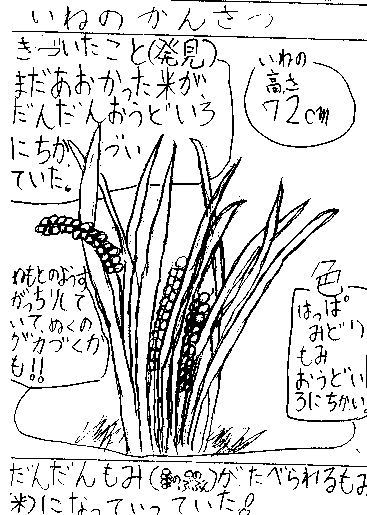 いねのかんさつ
きづいたこと(発見)
まだあおかった米が、
だんだんおうどいろ
にちかづい
ていた。
いねの
高さ
72cm
ねもとのようす
がっちりして
いて、ぬくの
ゲカづくか
も!!
色
はっぱ
みどり
もみ
おうどい
ろにちかい。
だんだんもみ()がたべられるもみ
(米)になっていっていた!